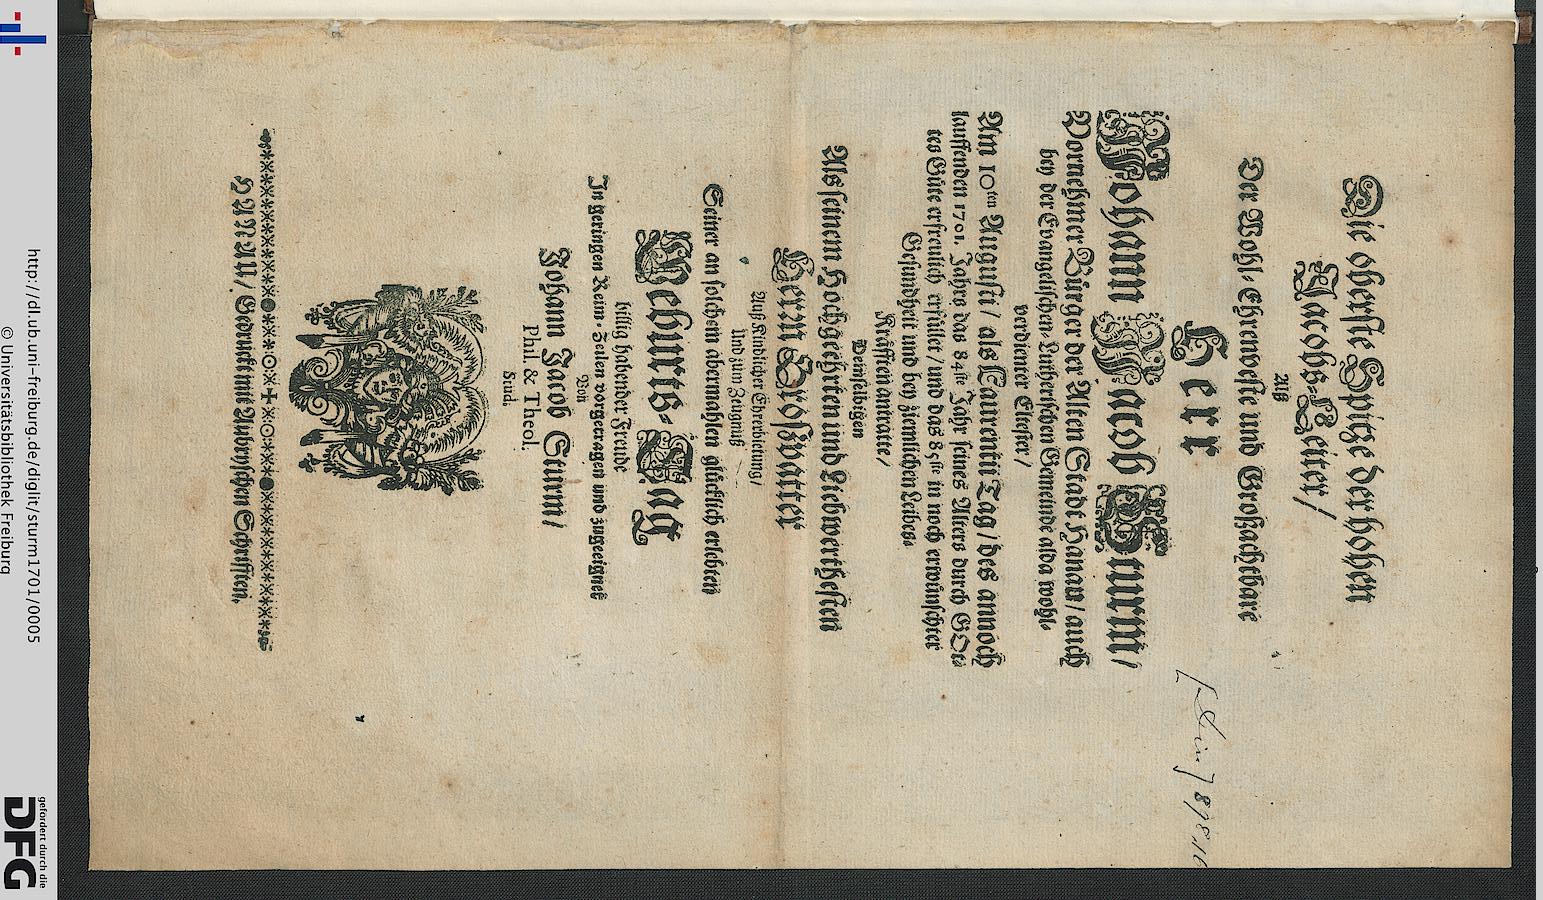 Die oberste Spitze der hohen
Jacobs-Leiter/
Alß
Der Wohl-Ehrenveste und Großachtbare
Herr
Johann Jacob Sturm/
Vornehmer Bürger der Alten Stadt Hanau/ auch
bey der Evangelischen-Lutherschen Gemeinde alda wohl-
verdienter Eltester/
Am 10ten Augusti/ als Laurentii Tag/ des annoch
lauffenden 1701. Jahrs das 84ste Jahr seines Alters durch GOt-
tes Güte erfreulich erfüllet/ und das 85ste in noch erwünschter
Gesundheit und bey ziemlichen Leibes-
Kräfften antratte/
Demselbigen
Als seinem Hochgeehrten und Liebwerthesten
Herrn Großvatter
Auß Kindlicher Ehrerbietung/
Und zum Zeugnüß
Seiner an solchem abermahlen glücklich erlebten
Geburts-Tag
billig habender Freude
In geringen Reim-Zeilen vorgetragen und zugeeignet
Von
Johann Jacob Sturm/
Phil. & Theol.
Stud.
HANAU/ Gedruckt mit Aubryschen Schrifften.
http://dl.ub.uni-freiburg.de/diglit/sturm1701/0005
© Universitätsbibliothek Freiburg
gefördert durch die
DFG